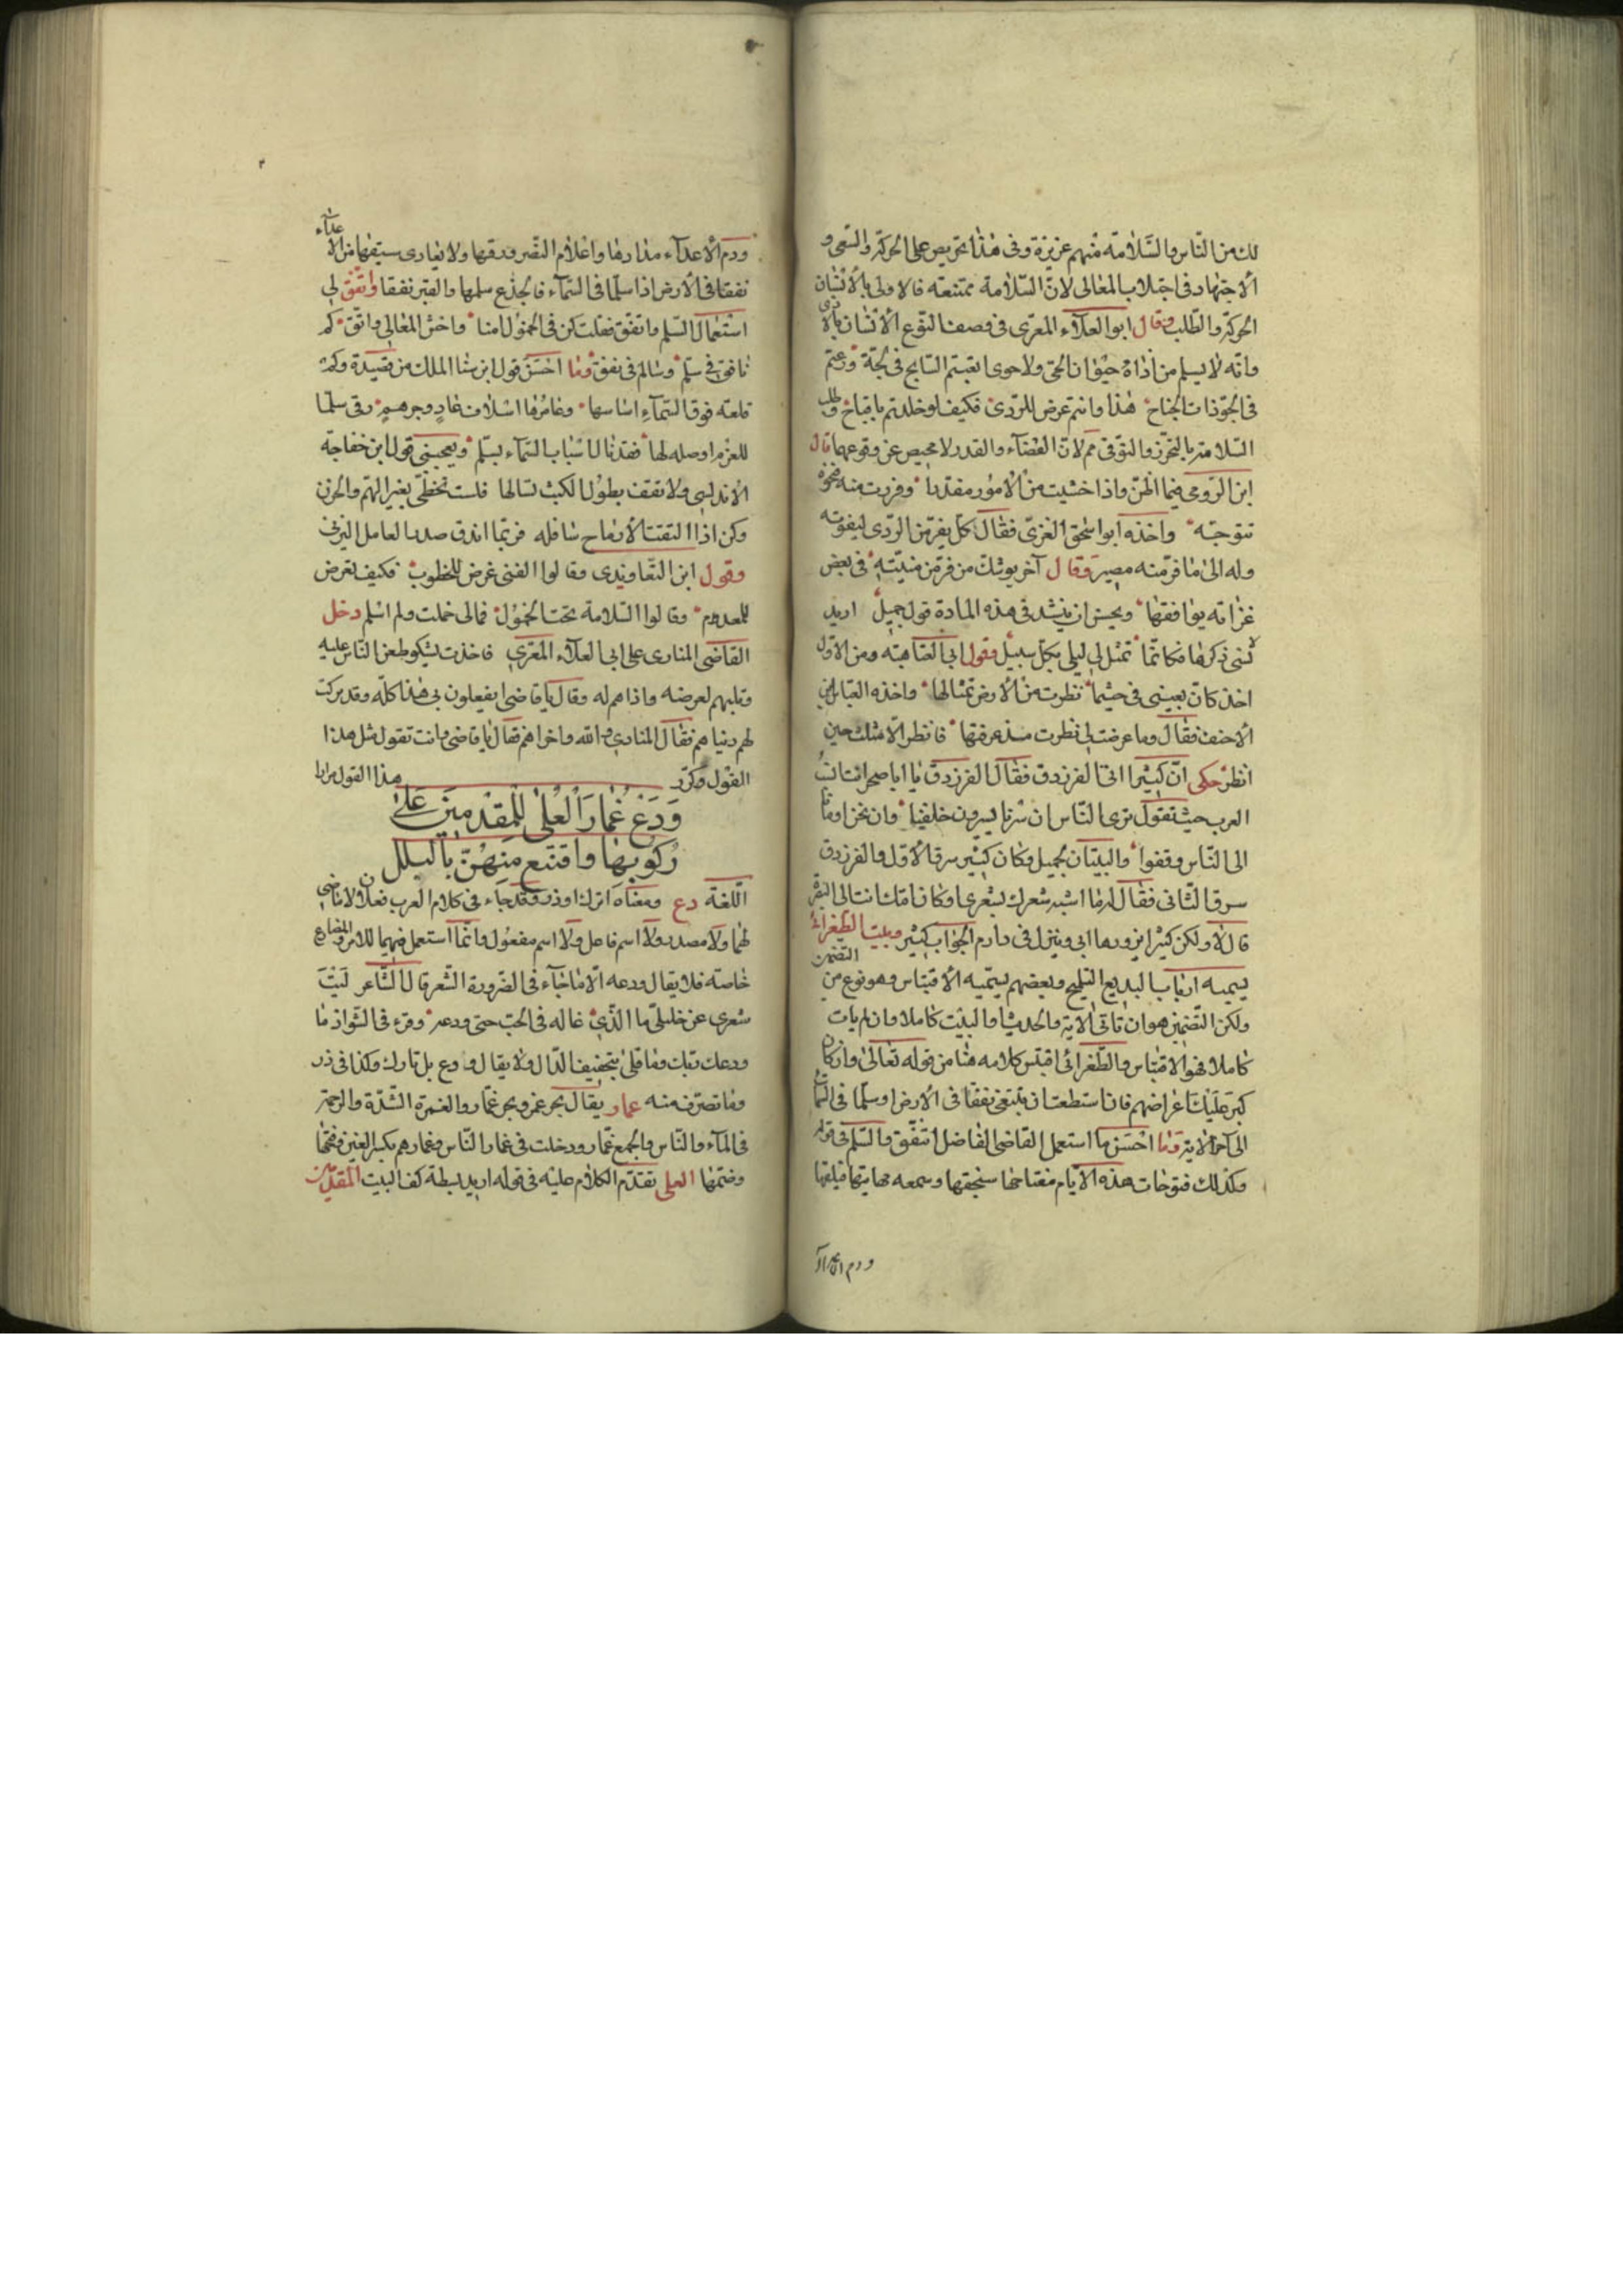 لك من النّاس والسّلامة منهم عزيزة وفى هذا تحريص على الحركة والسّعى و
الاجتهاد فى اجتلاب المعالى لانّ السّلامة ممتنعة فالاولى بالانسان
الحركة والطّلب وقال ابو العلاء المعرّى فى وصف النّوع الانسان بالاذى
وانّه لا يسلم من اذاه حيوان الحىّ ولا حوى تعبتم السّابح فى لجّة ورعتم
فى الجوّ ذات الجناح هذا وانتم عرض للرّدى فكيف لو خلدتم يا قباح وطلب
السّلامة بالتحرّز والتوقى مم لانّ القضاء والقدر لا محيص عن وقوعهما قال
ابن الرّومى فيما اظنّ واذا خشيت من الامور مقدرا وفررت منه فنحوه
تتوجّه واخذه ابو اسحق الغزىّ فقال كلّ يفرّ من الرّدى ليفوته
وله الى ما فرّ منه مصير وقال آخر يوشك من فرّ من منيّته فى بعض
غرّاته يوافقها ويحسن ان ينشد فى هذه المادة قول جميل اريد
لانسى ذكرها فكانّما تمثل لى ليلى بكلّ سبيل وقول ابى العتاهية ومن الاول
اخذ كانّ بعينى فى حيثما نظرت من الارض تمثالها واخذه العبّاس بن
الاحنف فقال وما عرضت لى نظرت مذ عرفتها فانظر الّا مثلت حين
انظر حكى انّ كثيرا اتى الفرزدق فقال الفرزدق يا ابا صخر انت انسب
العرب حيث تقول ترى النّاس ان سرنا يسيرون خلفنا وان نحن اومأنا
الى النّاس وقفوا والبيتان لجميل وكان كثير سرق الاوّل والفرزدق
سرق الثّانى فقال له ما اشبه شعرك بشعرى او كانت امّك انت الى البصرة
قال لا ولكن كثيرا يزورها ابى وينزل فى دارم الجواب كثير وبيت الطّغرائى
يسميه ارباب البديع التلميح وبعضهم يسمّيه الاقتباس وهو نوع من التضمين
ولكن التّضمين هو ان تاتى الآية والحديث او البيت كاملا وان لم يات
كاملا فهو الاقتباس والطّغرائى اقتبس كلامه هنا من قوله تعالى وان كان
كبر عليك اعراضهم فان استطعت ان تبتغى نفقا فى الارض او سلّما فى السّماء
الى آخر الآية وما احسن ما استعمل القاضى الفاضل النّفق والسّلم فى قوله
وكذلك فتوحات هذه الايّام مفتاحها سنجقها وسمعه
ودم الاعداء
ودم الاعداء مدارها واعلام النّصر ورقها ولا يتارى سيقها من الاعداء
نفقا فى الارض اذا سلّما فى السّماء فالجذع سلمها والقبر نفقا واتّفق لى
استعمال السّلم والنّفق فقلت كن فى الخمول امنا واخش المعالى واتّق كم
نافق فى سلم وسالم فى نفق وما احسن قول ابن سنا الملك من قصيدة وكم
قلعة فوق السّماء اساسها وعامرها اسلاف عاد وجرهم وقى سلّما
للعزم اوصله لها فقد نال اسباب السّماء بسلّم ويعجبنى قول ابن خفاجة
الاندلسى ولا تقف بطول الكيث تسالها فلست تحظى بغير الهمّ والحزن
وكن اذا التقت الارماح سافله فربّما اندق صدر العامل اليزنى
وقول ابن التّعاويذى وقالوا الفتى غرض للخطوب فكيف تعرض
للمعدوم وقالوا السّلامة تحت الخمول فمالى خملت ولم اسلم دخل
القاضى المنارى على ابى العلاء المعرّى فاخذت يشكو طعن النّاس عليه
وثلبهم لعرضه واذاهم له وقال يا قاضى ايفعلون بى هذا كلّه وقد تركت
لهم دنياهم فقال المنارى والله واخراهم فقال يا قاضى وانت تقول مثل هذا
القول وكرّر هذا القول مرارا
وَدَعْ غُمارَ العُلى لِلمُقْدِمينَ عَلى
رُكُوبِها واقْتَنِع مِنهُنّ بالبَلَلِ
اللّغة دع ومعناه اترك وذر وقد جاء فى كلام العرب فعلان لا ماضى
لهما ولا مصدر ولا اسم فاعل ولا اسم مفعول وانّما استعمل فيهما للامر والمضارع
خاصّة فلا يقال ودعه الّا ما جاء فى الضّرورة الشّعر قال الشّاعر ليت
شعرى عن خليلى ما الّذى غاله فى الحبّ حتى ودعه وقرء فى الشّواذ ما
ودعك ربّك وما قلى بتخفيف الدّال ولا يقال وادع بل تارك وكذا فى ذر
وما تصرّف منه غمار يقال بحر غمر وبحر غمار والغمرة الشّدّة والزحمة
فى الماء والنّاس والجمع غمار ودخلت فى غمار النّاس وغمارهم بكسر الغين وفتحها
وضمّها العلى تقدّم الكلام عليه فى قوله اريد بسطة كفّ البيت المقدمين